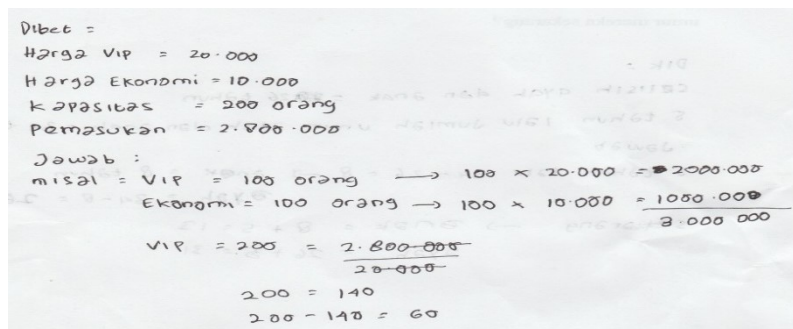 Diket =
Harga VIP = 20.000
Harga Ekonomi = 10.000
Kapasitas = 200 orang
Pemasukan = 2.800.000
Jawab :
misal = VIP = 100 orang → 100 × 20.000 = 2000.000
Ekonomi = 100 orang → 100 × 10.000 = 1000.000
3.000 000
VIP = 200 = 2.800 000
20 000
200 = 140
200 - 140 = 60